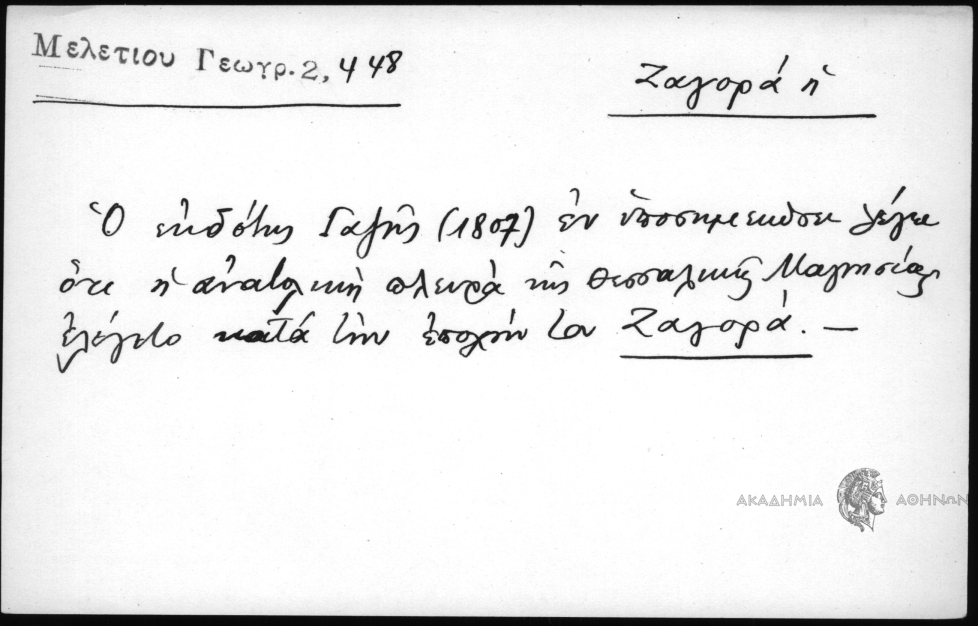 Μελετίου Γεωγρ. 2, 448
Ζαγορά ἡ
Ὁ ἐκδότης Γαζῆς (1807) ἐν ὑποσημειώσει λέγει
ὅτι ἡ ἀνατολικὴ πλευρὰ τῆς Θεσσαλικῆς Μαγνησίας
ἐλέγετο κατά τὴν ἐποχήν του Ζαγορά. —
ΑΚΑΔΗΜΙΑ ΑΘΗΝΩΝ